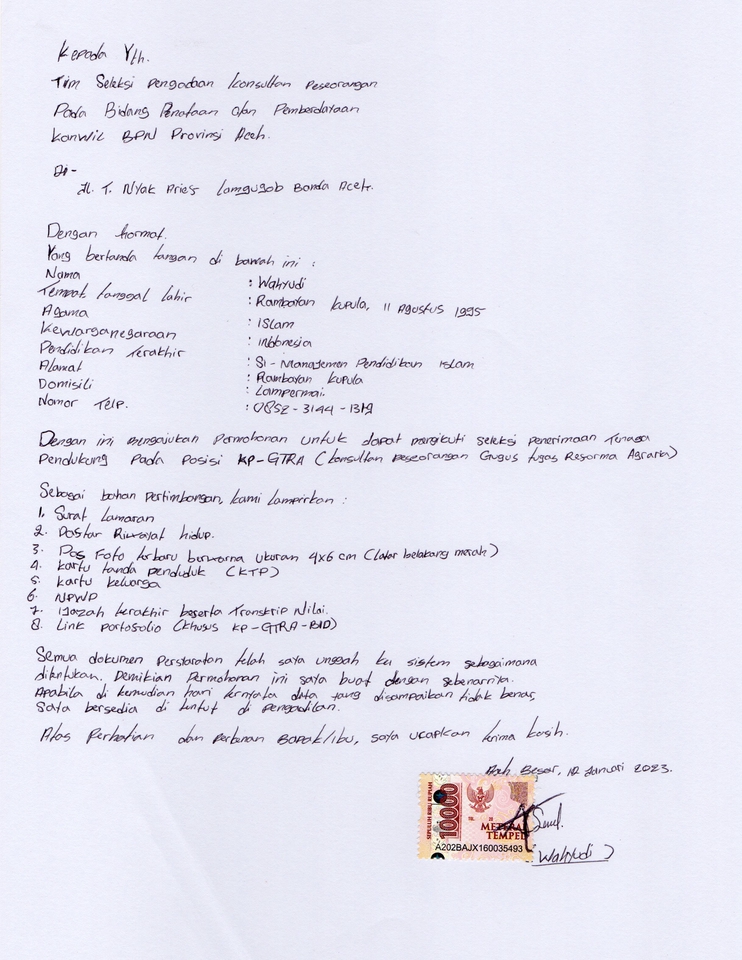 Kepada Yth.
Tim Seleksi pengadaan konsultan Peseorangan
Pada Bidang Penataan dan Pemberdayaan
Kanwil BPN Provinsi Aceh.
Di-
Jl. T. Nyak Arief Lamgugob Banda Aceh.
Dengan hormat.
Yang bertanda tangan di bawah ini :
Nama : Wahyudi
Tempat tanggal lahir : Rambayan kupula, 11 Agustus 1995
Agama : Islam
Kewarganegaraan : Indonesia
Pendidikan Terakhir : S1 - Manajemen Pendidikan Islam
Alamat : Rambayan kupula
Domisili : Lampermai.
Nomor Telp. : 0852-3144-1319
Dengan ini mengajukan Permohonan untuk dapat mengikuti seleksi penerimaan Tenaga
Pendukung pada posisi KP-GTRA (konsultan peseorangan Gugus tugas Reforma Agraria)
Sebagai bahan pertimbangan, kami lampirkan :
1. Surat Lamaran
2. Daftar Riwayat hidup.
3. Pas Foto terbaru berwarna ukuran 4x6 cm (latar belakang merah)
4. kartu tanda penduduk (KTP)
5. kartu keluarga
6. NPWP
7. Ijazah terakhir beserta Transkrip Nilai.
8. Link portofolio (khusus KP-GTRA-BID)
Semua dokumen Persyaratan telah saya unggah ke sistem sebagaimana
ditentukan. Demikian Permohonan ini saya buat dengan sebenarnya.
Apabila di kemudian hari ternyata data yang disampaikan tidak benar,
saya bersedia di tuntut di pengadilan.
Atas Perhatian dan perkenan Bapak/ibu, saya ucapkan terima kasih.
Aceh Besar, 12 Januari 2023.
SEPULUH RIBU RUPIAH
10000
METERAI
TEMPEL
A202BAJX160035493
(Wahyudi)